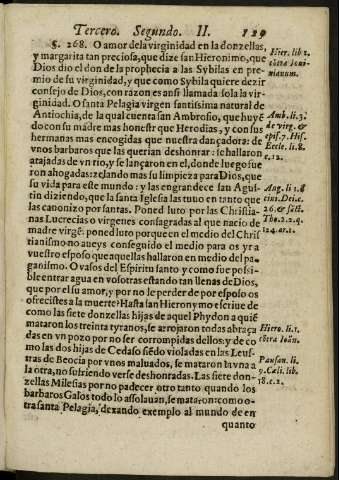 Tercero. Segundo. II. 129
§. 268. O amor dela virginidad en la donzellas,
y margarita tan preciosa, que dize san Hieronimo, que
Dios dio el don de la prophecia a las Sybilas en pre-
mio de su virginidad, y que como Sybila quiere dezir
consejo de Dios, con razon es ansi llamada sola la vir-
ginidad. O santa Pelagia virgen santisima natural de
Antiochia, de la qual cuenta san Ambrosio, que huyẽ
do con su madre mas honestr que Herodias, y con sus
hermanas mas encogidas que nuestra dançadora: de
vnos barbaros que las querian deshonrar: se hallaron
atajadas de vn rio, y se lançaron en el, donde luego fue
ron ahogadas: zelando mas su limpieza para Dios, que
su vida para este mundo: y las engrandece san Agus-
tin diziendo, que la santa Iglesia las tuuo en tanto que
las canonizo por santas. Pone d luto por las Christia-
nas Lucrecias o virgenes consagradas al que nacio de
madre virgẽ: poned luto porque en el medio del Chris
tianismo no aueys conseguido el medio para os yr a
vuestro esposo que aquellas hallaron en medio del pa-
ganismo. O vasos del Espiritu santo y como fue possi-
ble entrar agua en vosotras estando tan llenas de Dios,
que por el su amor, y por no le perder de por esposo os
ofrecistes a la muerte? Hasta san Hieronymo eloriue de
como las siete donzellas hijas de aquel Phydon a quiẽ
mataron los treinta tyranos, se arrojaron todas abraça
das en vn pozo por no ser corrompidas dellos: y de co
mo las dos hijas de Cedaso siẽdo violadas en las Leuc-
tras de Beocia por vnos maluados, se mataron la vna a
la otra, no sufriendo verse deshonradas. Las siete don-
zellas Milesias por no padecer otro tanto quando los
barbaros Galos todo lo assolauan, se mataron: como o-
tra santa Pelagia, dexando exemplo al mundo de en
quanto
Hier. lib 1.
cõtra Ioui-
nianum.
Amb. li 3.
de virg. &
epis. 7. His.
Eccle. li. 8.
c. 12.
Aug. li 1. &
ciui. Dei. c.
26. &
Tho. 2. 2. q.
124. ar. 1.
Hiero. li. 1.
cõtra Ioũn.
Pausan. li
9. Cæli. lib
18. c. 2.